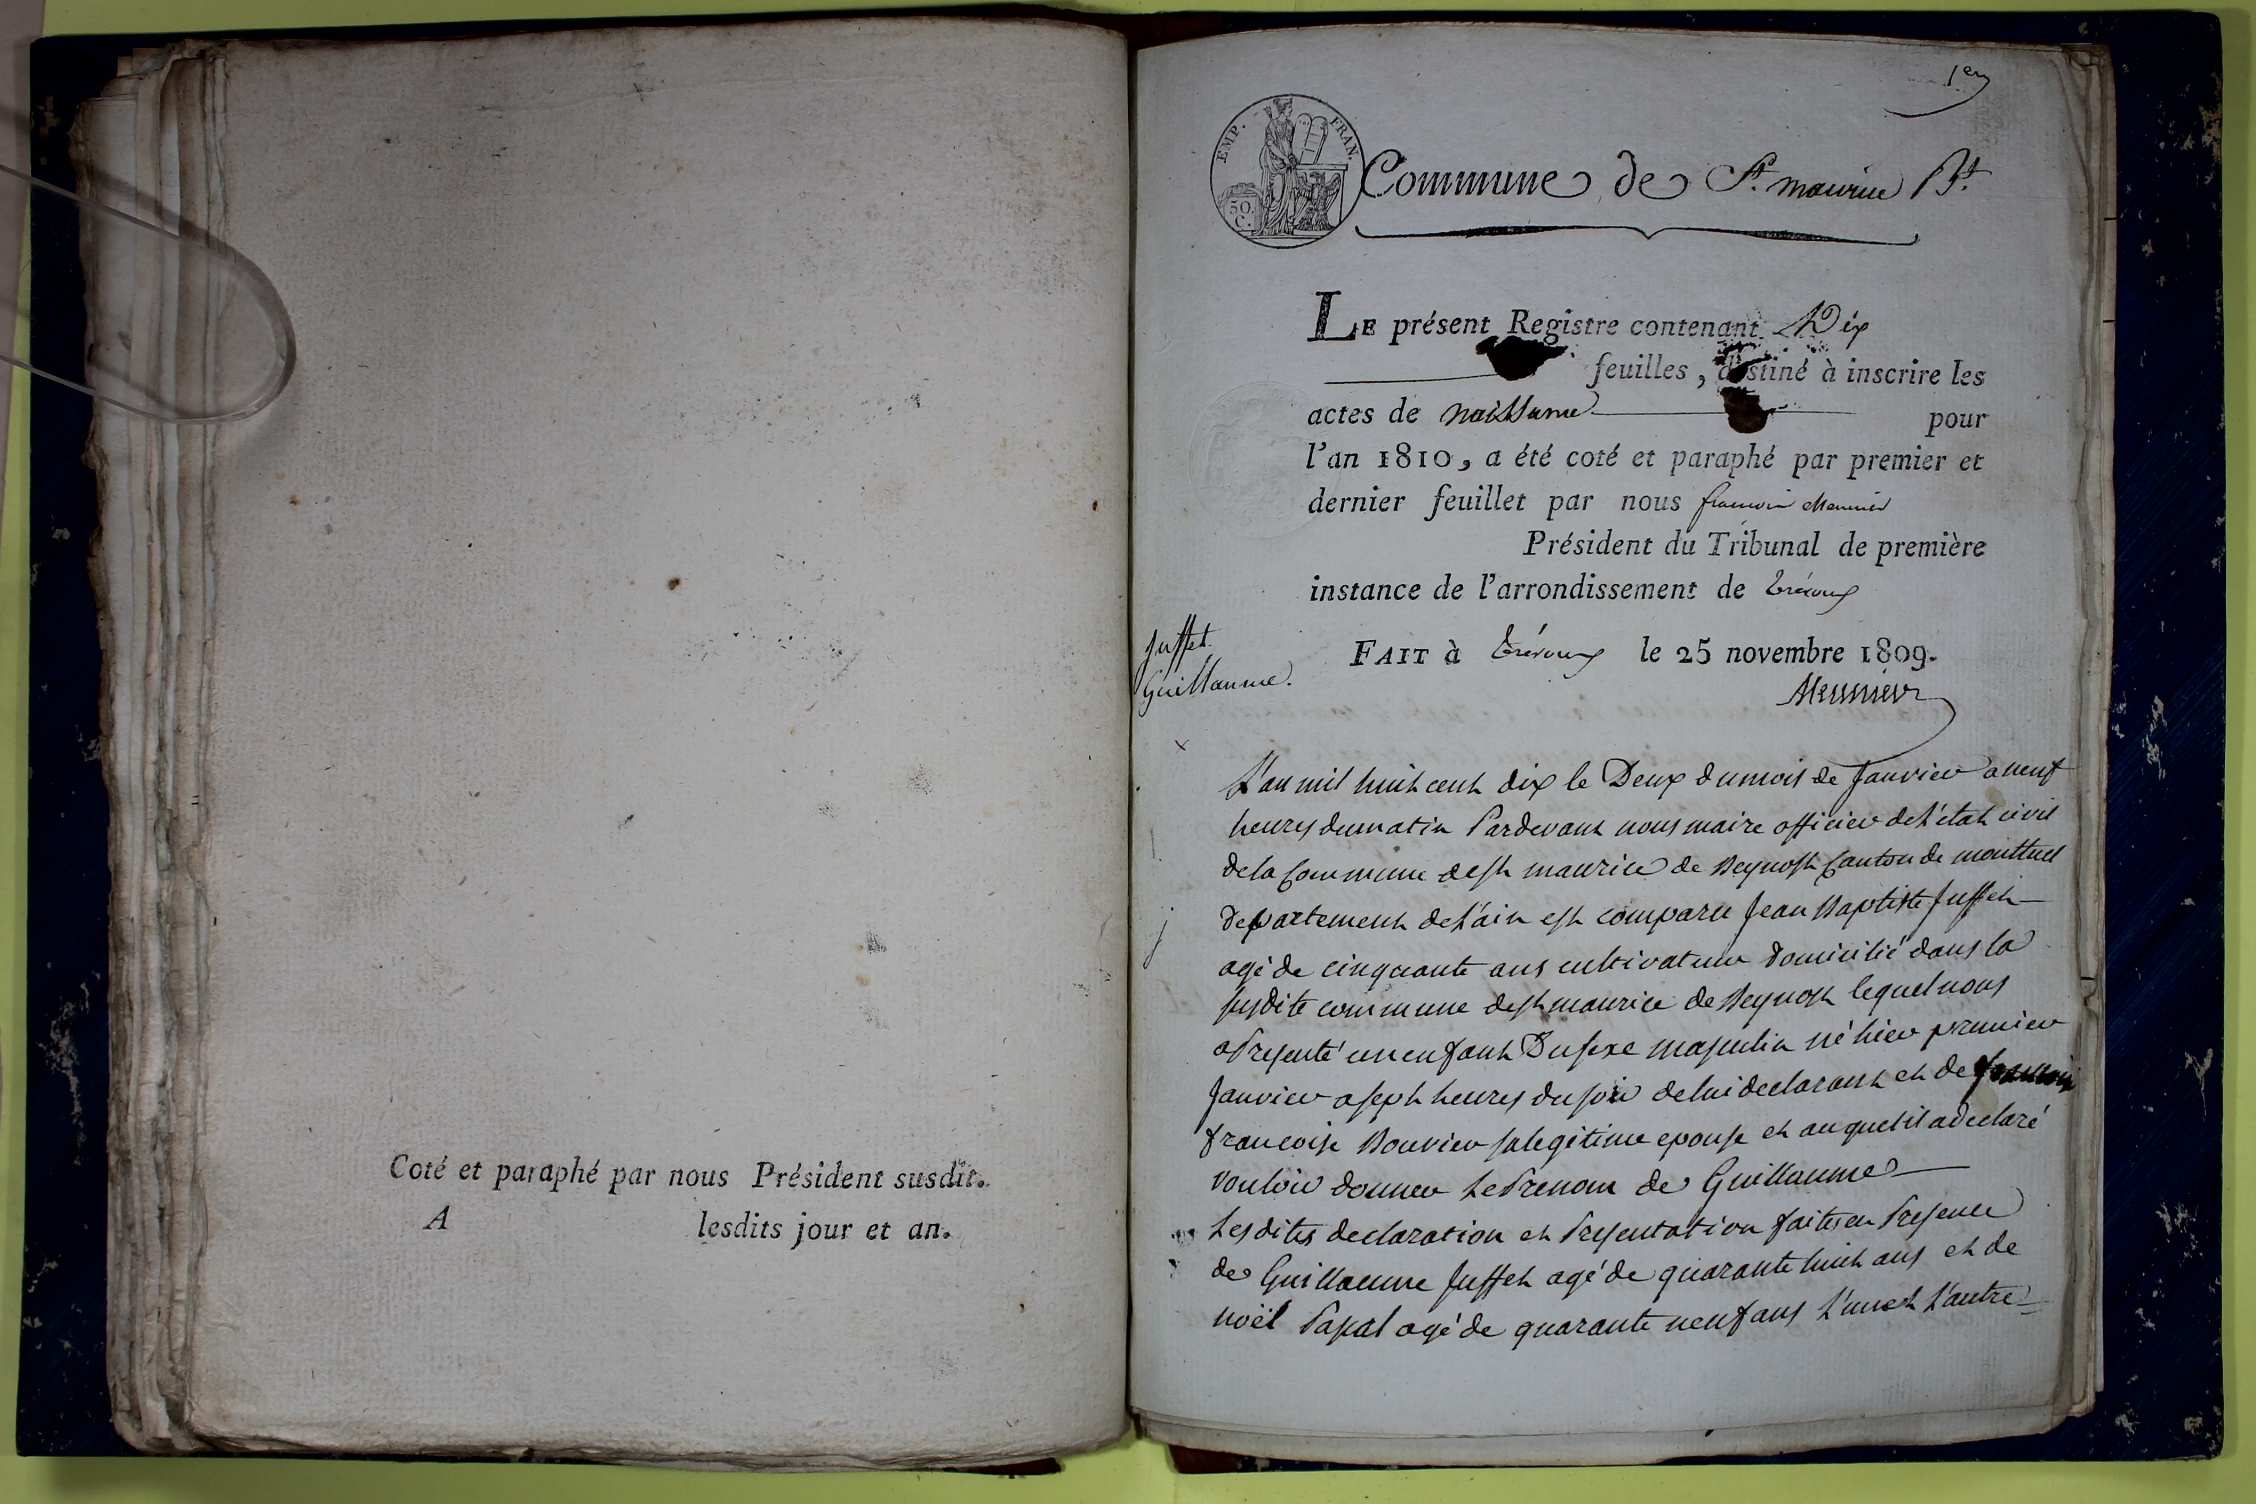 Coté et paraphé par nous Président susdit.
A lesdits jour et an.
1er
EMP. FRAN.
50. C.
Commune de St. maurice Bt.
LE présent Registre contenant Dix
feuilles, destiné à inscrire les
actes de naissance pour
l'an 1810, a été coté et paraphé par premier et
dernier feuillet par nous francois Meunier
Président du Tribunal de première
instance de l'arrondissement de trévoux
FAIT à trévoux le 25 novembre 1809.
Meunier
Juffet
Guillaume.
L'an mil huit cent dix le Deux du mois de Janvier a neuf
heures du matin Pardevant nous maire officier de l'état civil
de la Commune de st maurice de Beynost Canton de montluel
departement de l'ain est comparu Jean Baptiste Juffet
agé de cinquante ans cultivateur domicilié dans la
susdite commune de st maurice de Beynost lequel nous
a Presenté un enfant Du sexe masculin né hier premier
Janvier a sept heures du soir de lui declarant et de
francoise Bouvier sa legitime epouse et au quel il a declaré
vouloir donner le Prenom de Guillaume
Lesdites declaration et Presentation faites en Presence
de Guillaume Juffet agé de quarante huit ans et de
noël Papat agé de quarante neuf ans l'un et l'autre